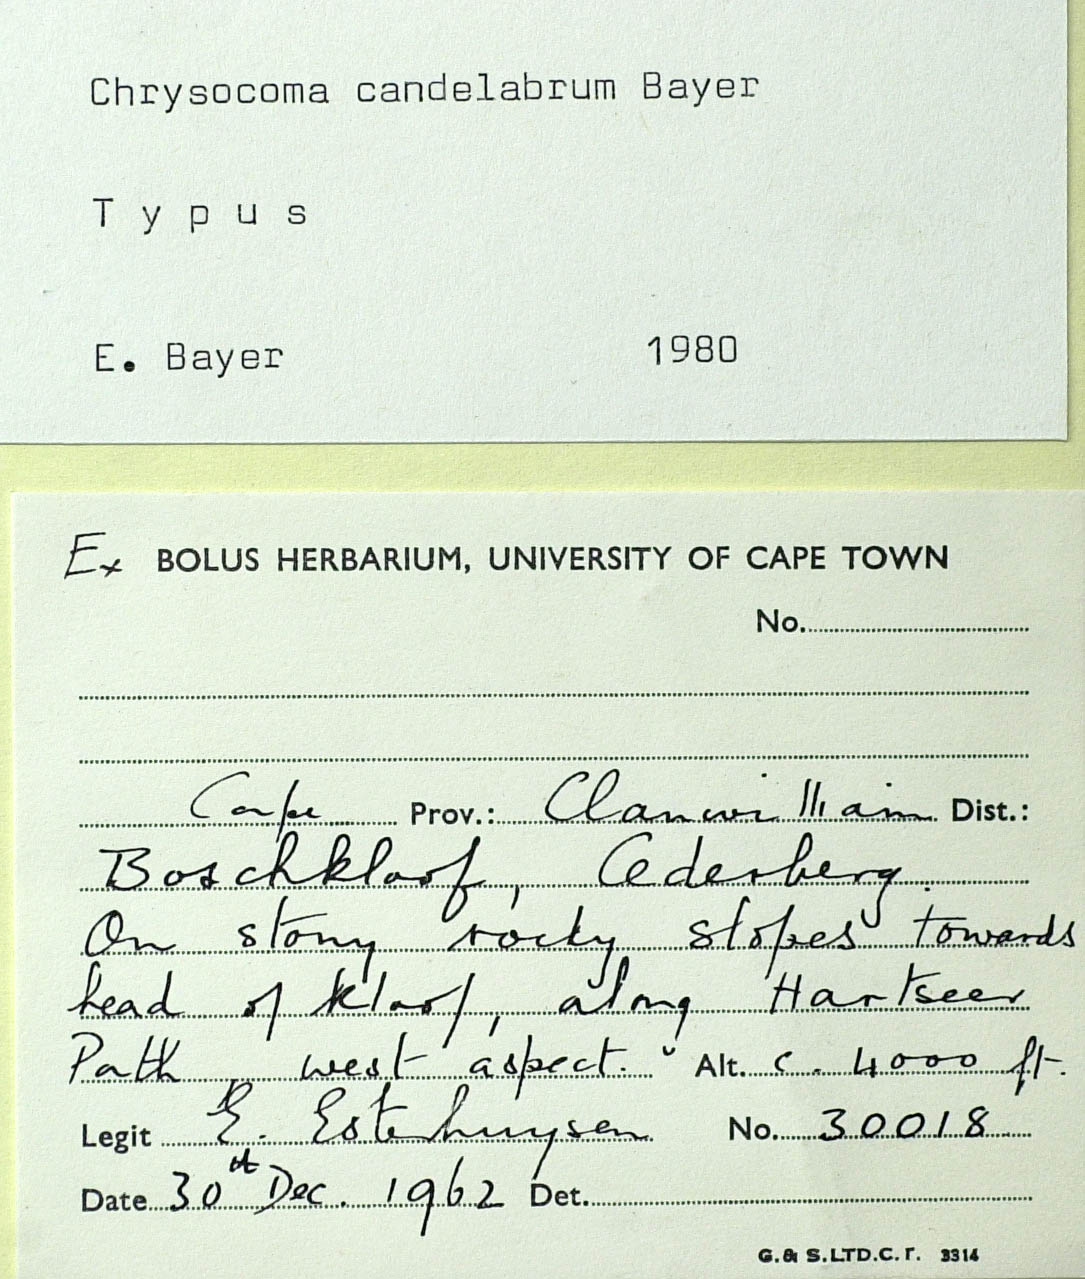 Chrysocoma candelabrum Bayer
Typus
E. Bayer 1980
Ex BOLUS HERBARIUM, UNIVERSITY OF CAPE TOWN
No.
Cape Prov.: Clanwilliam Dist.:
Boschkloof, Cederberg.
On stony rocky slopes towards
head of kloof, along Hartseer
Path west aspect. Alt. c. 4000 ft.
Legit E. Esterhuysen No. 30018
Date 30th Dec. 1962 Det.
G. & S. LTD. C. T. 3314